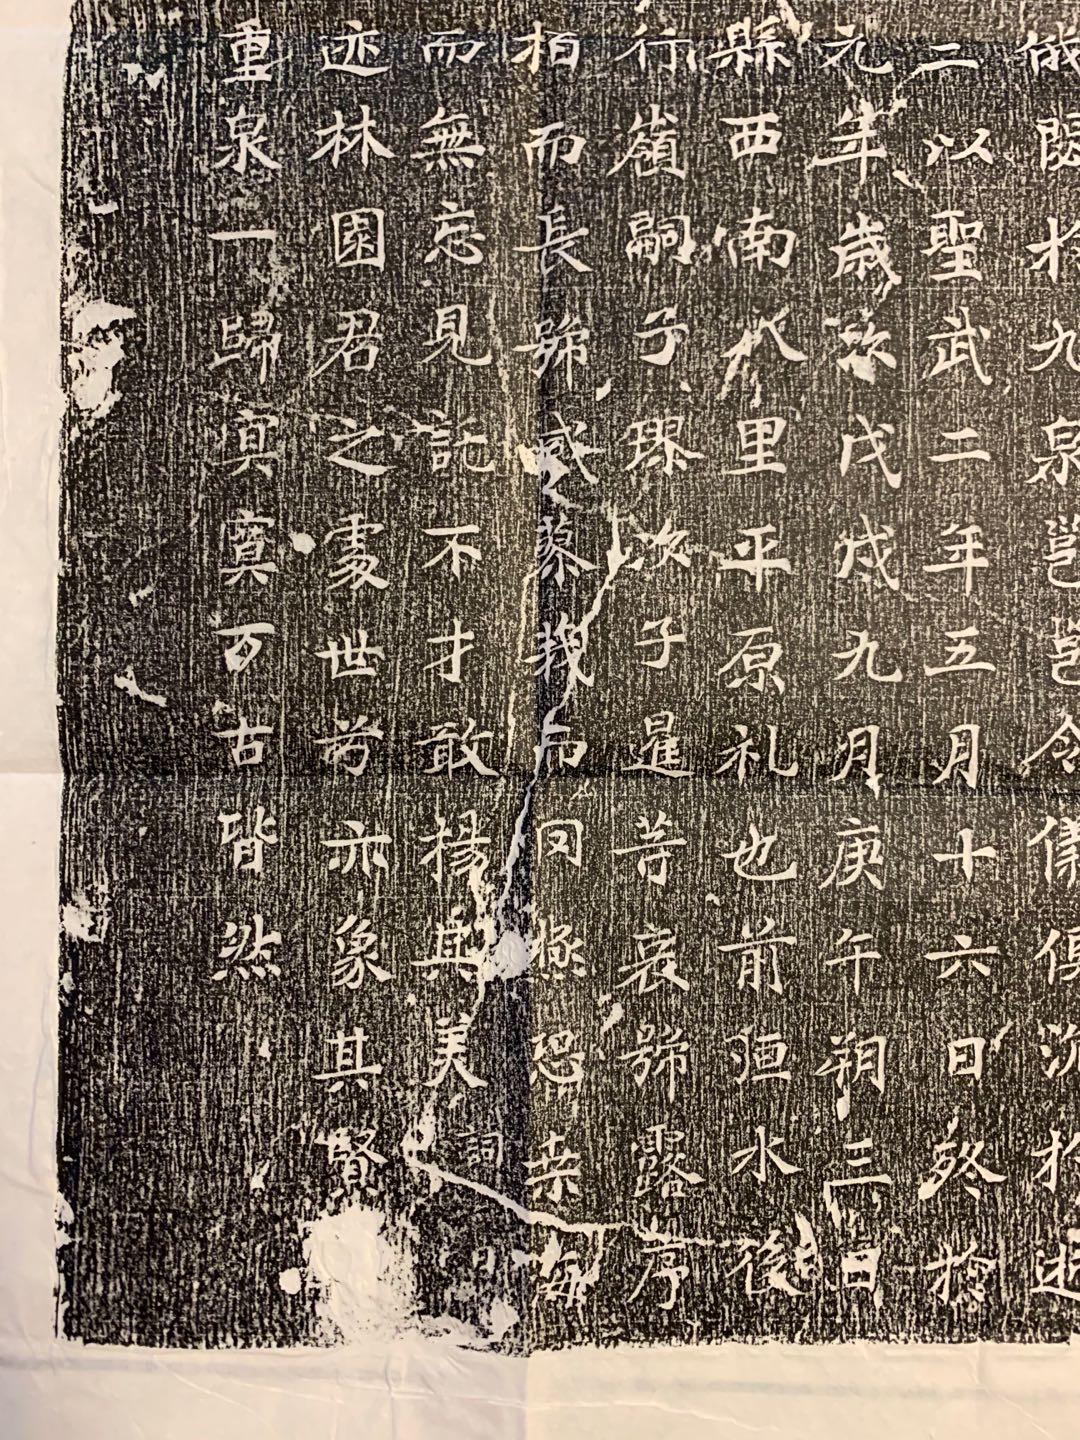 俄閟於九泉邕邕令儀便沉於
二以聖武二年五月十六日終於
元年歲次戊戌九月庚午朔三日
縣西南八里平原礼也前洹水後
行嶺嗣子璆次子暹等哀號露序
栢而長號感蓼莪而罔極恐桒海
而無忘見託不才敢揚其美詞曰
迹林園君之處世芳亦象其賢
重泉一歸寞寞万古皆然